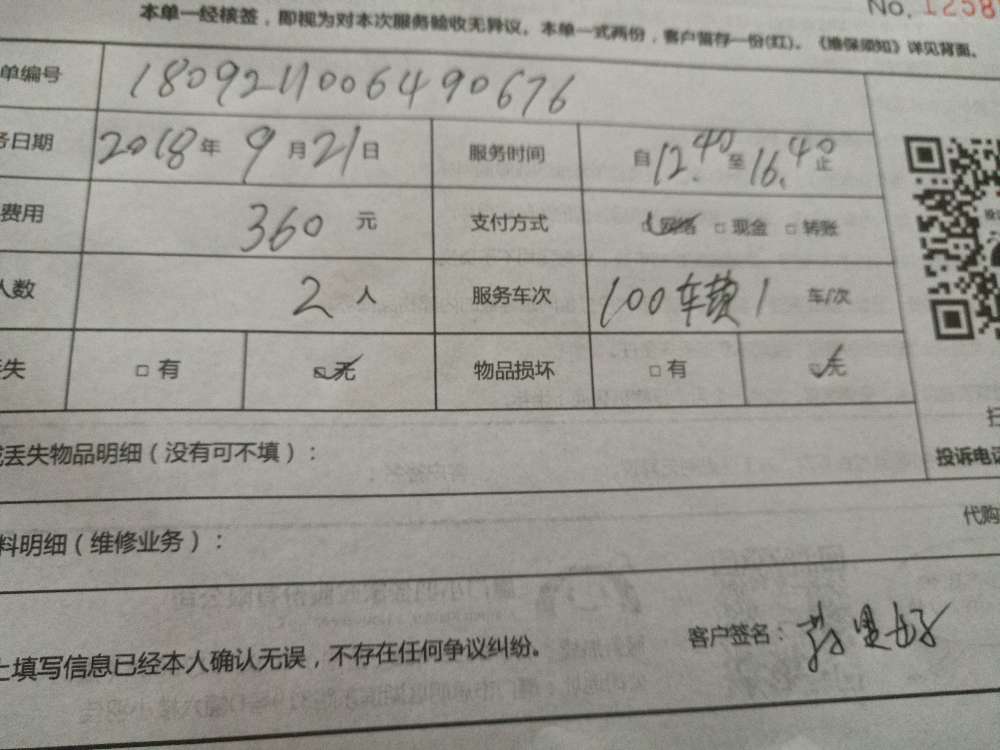 本单一经核签，即视为对本次服务验收无异议。本单一式两份，客户留存一份(红)。《维保须知》详见背面。
No. 1258
单编号 1809211006490676
务日期 2018年9月21日 服务时间 自12.40至16.40止
费用 360 元 支付方式 网络 □ 现金 □ 转账
人数 2 人 服务车次 100车费1 车/次
丢失 □ 有 无 物品损坏 □ 有 无
或丢失物品明细（没有可不填）：
投诉电话
代购
料明细（维修业务）：
上填写信息已经本人确认无误，不存在任何争议纠纷。 客户签名：